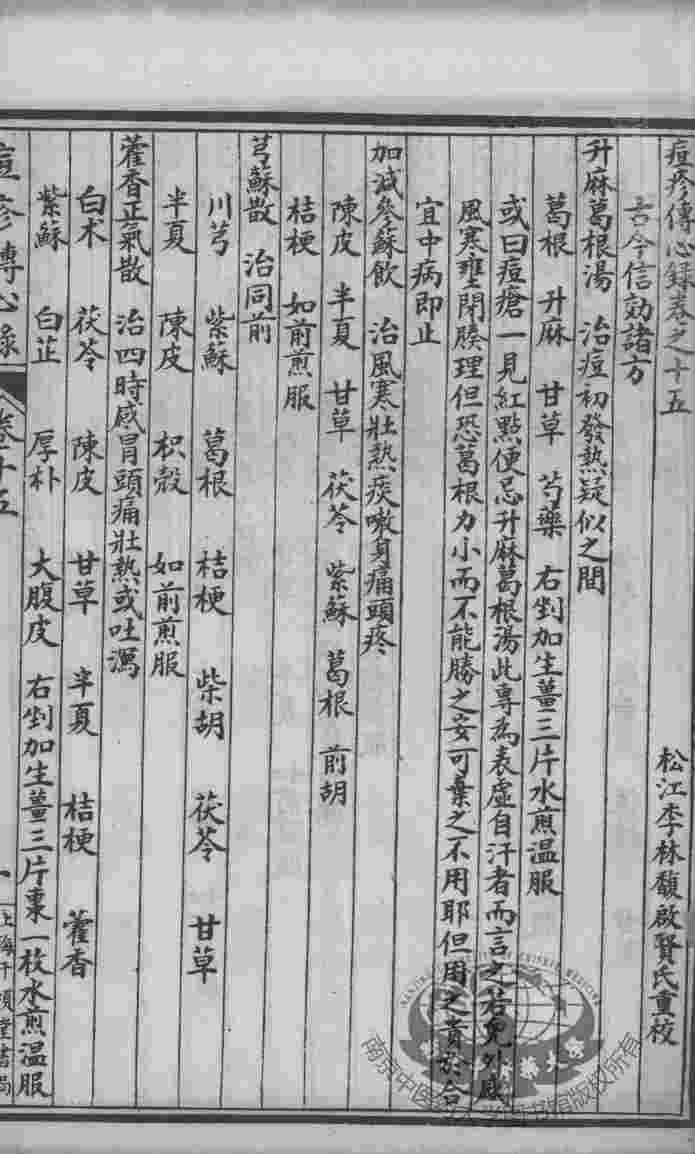 痘疹傳心錄卷之十五
松江李林馥啟賢氏重校
古今信効諸方
升麻葛根湯　治痘初發熱疑似之間
葛根　升麻　甘草　芍藥　右剉加生薑三片水煎温服
或曰痘瘡一見紅點便忌升麻葛根湯此專為表虛自汗者而言之若兒外感
風寒壅閉腠理但恐葛根力小而不能勝之安可棄之不用耶但用之貴於合
宜中病即止
加減參蘇飲　治風寒壯熱痰嗽身痛頭疼
陳皮　半夏　甘草　茯苓　紫蘇　葛根　前胡
桔梗　如前煎服
芎蘇散　治同前
川芎　紫蘇　葛根　桔梗　柴胡　茯苓　甘草
半夏　陳皮　枳殼　如前煎服
藿香正氣散　治四時感冒頭痛壯熱或吐瀉
白术　茯苓　陳皮　甘草　半夏　桔梗　藿香
紫蘇　白芷　厚朴　大腹皮　右剉加生薑三片棗一枚水煎温服
痘疹傳心錄
卷十五
一
上海千頃堂書局